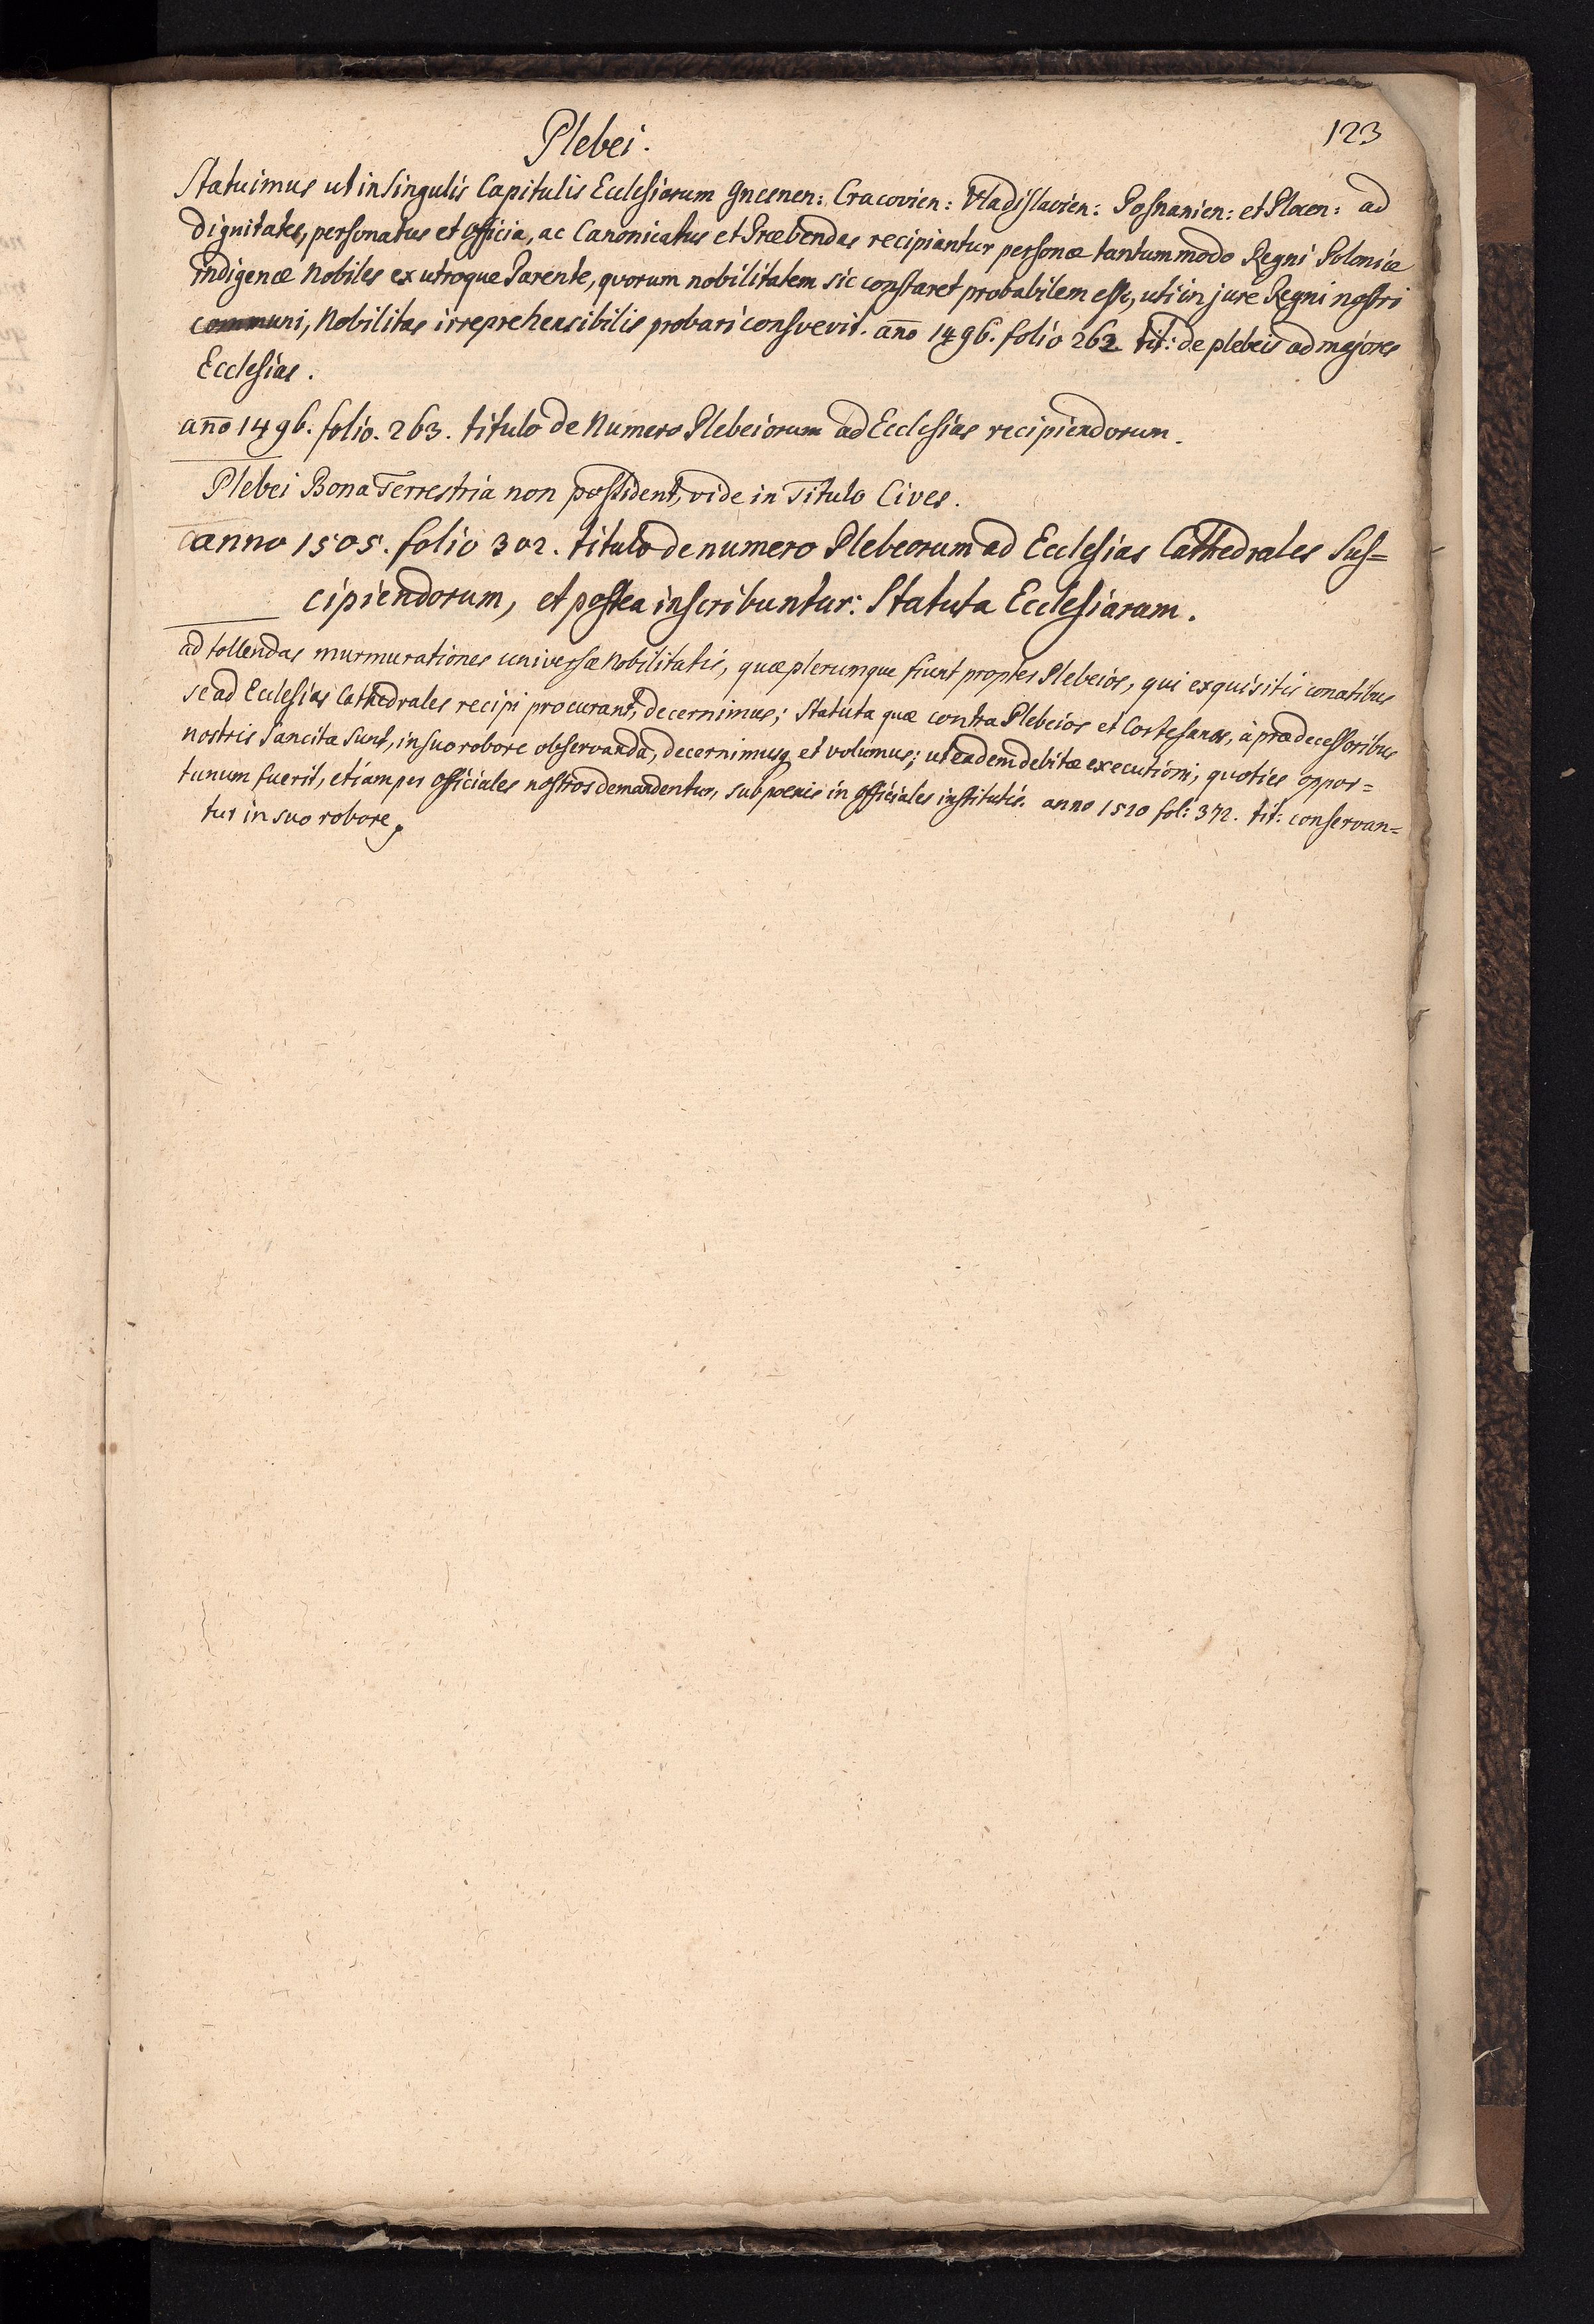 123
Plebei.
Statuimus ut in singulis Capitulis Ecclesiarum Gnesnen: Cracovien: Vladislavien: Posnanien: et Plocen: ad
dignitates, personatus et officia, ac Canonicatus et Præbendas recipiantur personæ tantummodo Regni Poloniæ
indigenæ Nobiles ex utroque Parente, quorum nobilitatem sic constaret probabilem esse, uti in jure Regni nostri
communi, Nobilitas irreprehensibilis probari consvevit. año 1496. folio 262. tit: de plebeis ad majores
Ecclesias.
año 1496. folio. 263. titulo de Numero Plebeiorum ad Ecclesias recipiendorum.
Plebei Bona Terrestria non possident, vide in Titulo Cives.
anno 1505. folio 302. titulo de numero Plebeorum ad Ecclesias Cathedrales Sus=
cipiendorum, et postea inscribuntur: Statuta Ecclesiarum.
ad tollendas murmurationes universæ Nobilitatis, quæ plerumque fiunt propter Plebeios, qui exquisitis conatibus
se ad Ecclesias Cathedrales recipi procurant, decernimus; Statuta quæ contra Plebeios et Cortesanos, à prædecessoribus
nostris Sancita Sunt, in suo robore observanda, decernimusq et volumus; ut eadem debitæ executioni, quoties oppor=
tunum fuerit, etiam per Officiales nostros demandentur, sub poenis in officiales institutis. anno 1510 fol: 372. tit: conservan=
tur in suo robore.